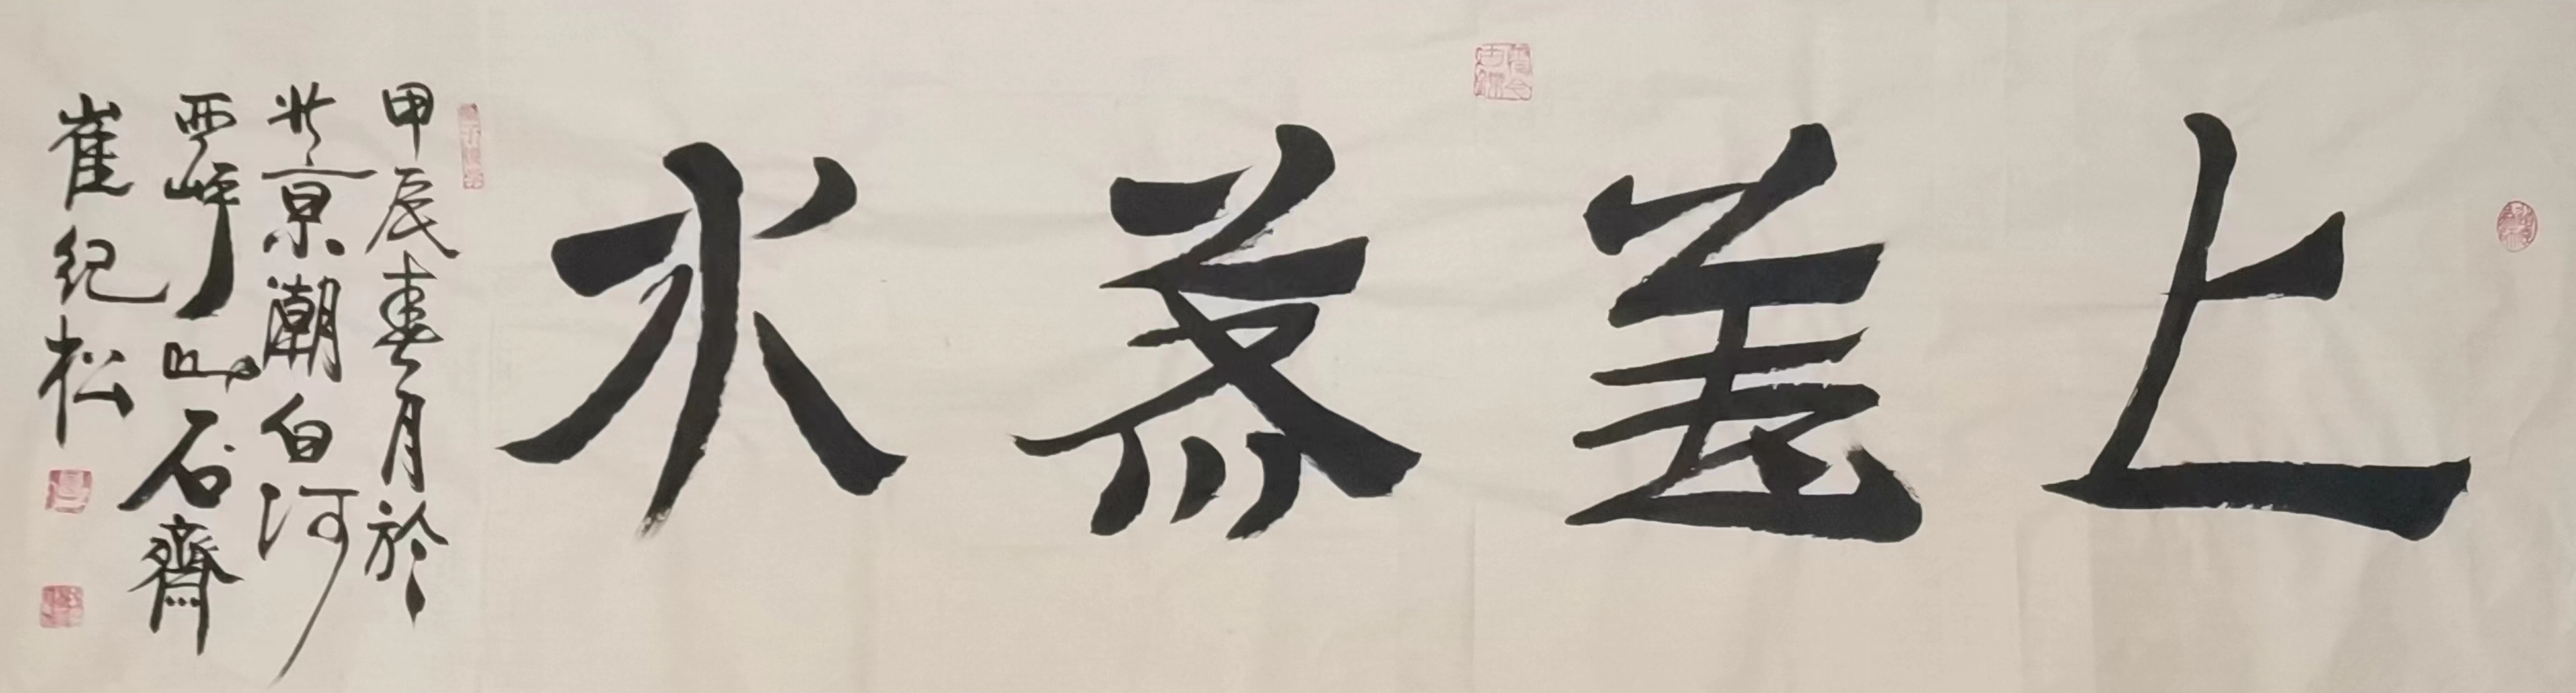 上善若水
甲辰春月於
北京潮白河
西岸山石齋
崔纪松